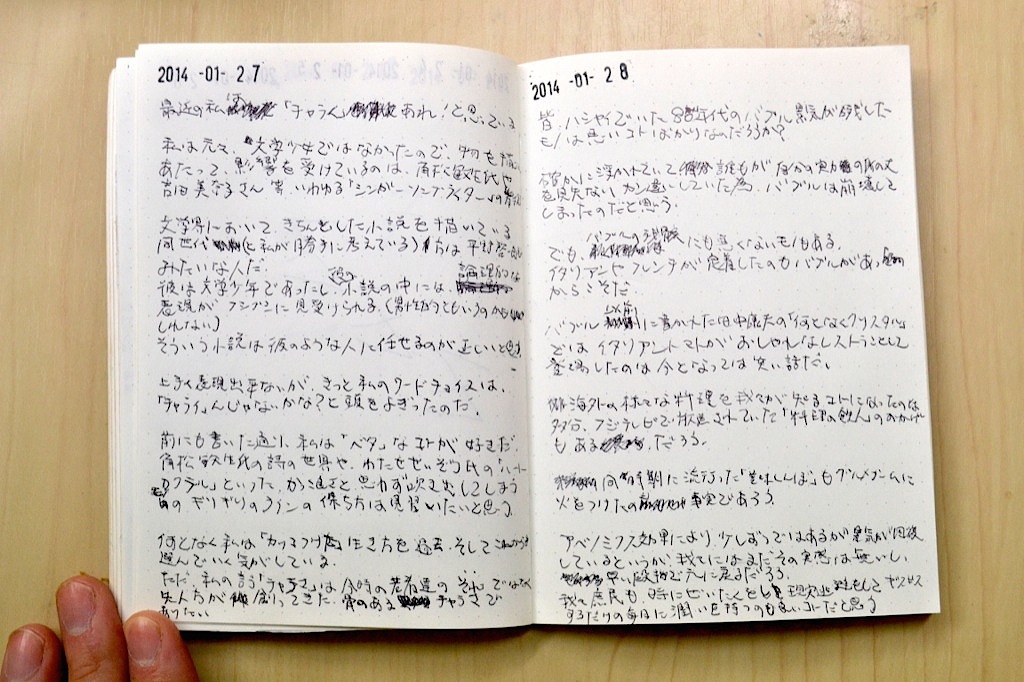 2014-01-27
最近の私は「チャラい」あれ！と思っている
私は元々、文学少女ではなかったので、物を描く
あたって、影響を受けているのは、角松敏生氏や
吉田美奈子さん等、いわゆる「シンガーソングライター」の
文学界において、きちんとした小説を描いている
同世代(と私が勝手に考えている)方は平野啓一郎
みたいな人だ。
彼は文学少年であったし、彼の小説の中には、論理的な
表現がフシブシに見受けられる。(男性だからというのかも
しれない)
そういう小説は彼のような人に任せるのが正しいと思う。
上手く表現出来ないが、きっと私のワードチョイスは、
「チャラい」んじゃないかな？と頭をよぎったのだ。
前にも書いた通り、私は「ベタ」なコトが好きだ。
角松敏生氏の詩の世界や、わたせせいぞう氏の「ハート
カクテル」といった、から
のギリギリのラインの保ち方は見習いたいと思う。
何となく私は「カッコつけた」生き方を過去、そしてこれからも
選んでいく気がしている。
ただ、私の言う「チャラさ」は今時の若者達のそれではなく
先人方が創ってきた、のあるチャラさで
ありたい
2014-01-28
皆、ハシャイでいた80年代のバブル景気が残した
モノは悪いコトばかりなのだろうか？
確かに浮かれていて誰もが自分の実力の
を見失ないカン違いしていた為、バブルは崩壊して
しまったのだと思う。
でも、バブルへのにも悪くないモノもある。
イタリアンやフレンチが定着したのもバブルがあった
からこそだ。
バブル以前に書かれた田中康夫の「何となくクリスタル」
では、イタリアントマトがおしゃれなレストランとして
登場したのは今となっては笑い話だ。
海外の様々な料理を我々が知るコトになったのは
多分、フジテレビで放送されていた「料理の鉄人」のおかげ
もあるだろう。
同時期に流行った「美味しんぼ」もグルメブームに
火をつけたの事実であろう。
アベノミクス効果により、少しずつではあるが景気が回復
しているというが、我々にはまだその実感は無いし、
早い段階で元に戻るだろう。
我々庶民も時にぜいたくとし現実逃避をして
するだけの毎日に潤いを持つのも良いコトだと思う